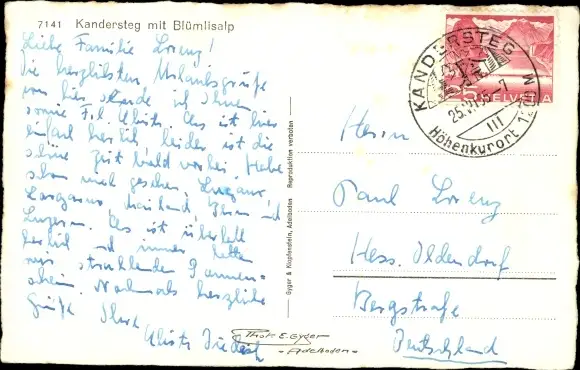 7141 Kandersteg mit Blümlisalp
Liebe Familie Lorenz!
Die herzlichsten Urlaubsgrüße
von hier sende ich Ihnen
sowie Frl. Es ist hier
einfach herrlich leider ist die
schöne Zeit bald vorbei. Habe
schon viel gesehen, Lugano,
Locarno, Mailand, und
Luzern. Es ist überall
herrlich und immer hatten
wir strahlenden Sonnen-
schein. Nochmals herzliche
Grüße Ihre
KANDERSTEG
25.VI.55-7
III
Höhenkurort 1200 M
HELVETIA
Herrn
Paul Lorenz
Hess. Oldendorf
Bergstraße
Deutschland
Gyger & Klopfenstein, Adelboden
Reproduktion verboten
Phot. E. Gyger
- Adelboden -